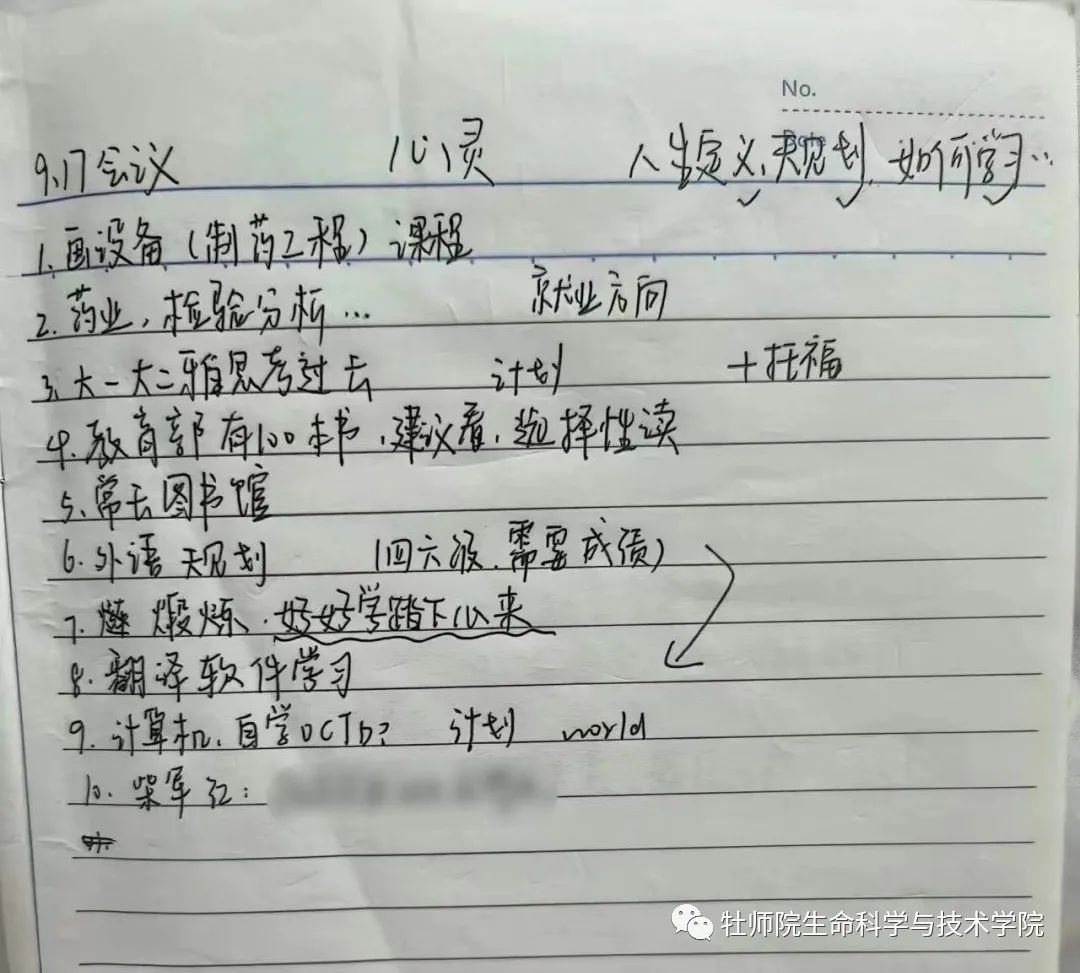 No.
9.17会议 心灵 人生定义、规划, 如何学习…
1. 画设备(制药工程)课程
2. 药业, 检验分析… 就业方向
3. 大一大二雅思考过去 计划 +托福
4. 教育部有100本书, 建议看, 选择性读
5. 常去图书馆
6. 外语规划 (四六级. 需要成绩)
7. 煅炼. 好好学踏下心来
8. 翻译软件学习
9. 计算机. 自学 计划 world
10. 柴军红:
牡师院生命科学与技术学院